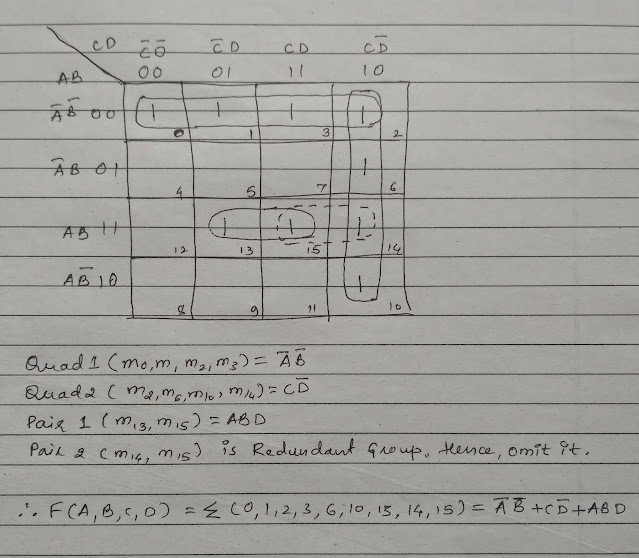 CD C̅D̅ C̅D CD CD̅
AB 00 01 11 10
A̅B̅ 00 1 1 1 1
0 1 3 2
A̅B 01 1
4 5 7 6
AB 11 1 1 1
12 13 15 14
AB̅ 10 1
8 9 11 10
Quad 1 (m0, m, m2, m3) = A̅B̅
Quad 2 (m2, m6, m10, m14) = CD̅
Pair 1 (m13, m15) = ABD
Pair 2 (m14, m15) is Redundant Group. Hence, omit it.
∴ F(A, B, C, D) = Σ (0, 1, 2, 3, 6, 10, 13, 14, 15) = A̅B̅ + CD̅ + ABD